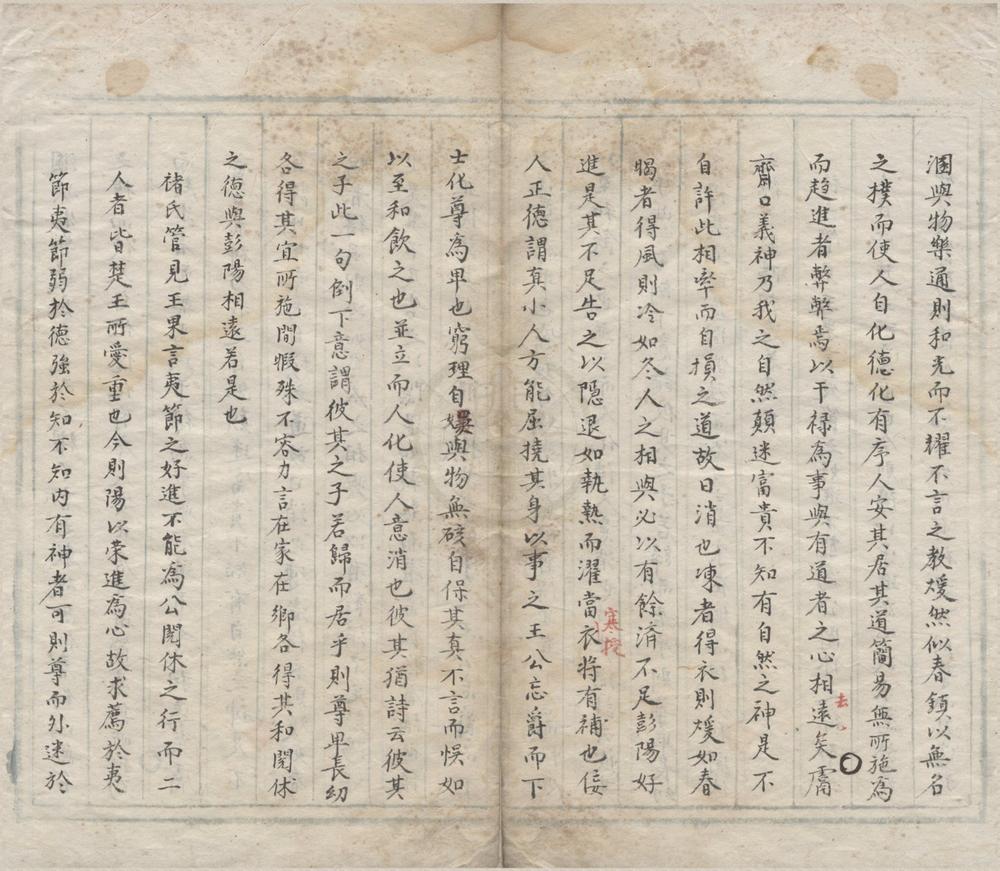 溷與物樂通則和光而不耀不言之教煖然似春鎮以無名
之樸而使人自化德化有序人安其居其道簡易無所施為
而趍進者弊弊焉以干禄為事與有道者之心相遠矣膚
去
齋口義神乃我之自然顛迷富貴不知有自然之神是不
自許此相率而自損之道故日消也凍者得衣則煖如春
暍者得風則冷如冬人之相與必以有餘濟不足彭陽好
進是其不足告之以隱退如執熱而濯當衣將有補也佞
寒授
人正德謂真小人方能屈撓其身以事之王公忘爵而下
士化尊為卑也窮理自娛與物無礙自保其真不言而悞如
以至和飲之也並立而人化使人意消也彼其猶詩云彼其
之子此一句倒下意謂彼其之子若歸而居乎則尊卑長幼
各得其宜所施閒暇殊不容力言在家在鄉各得其和閱休
之德與彭陽相遠若是也
禇氏管見王果言夷節之好進不能為公閱休之行而二
人者皆楚王所愛重也今則陽以榮進為心故求薦於夷
節夷節弱於德強於知不知內有神者可則尊而外迷於